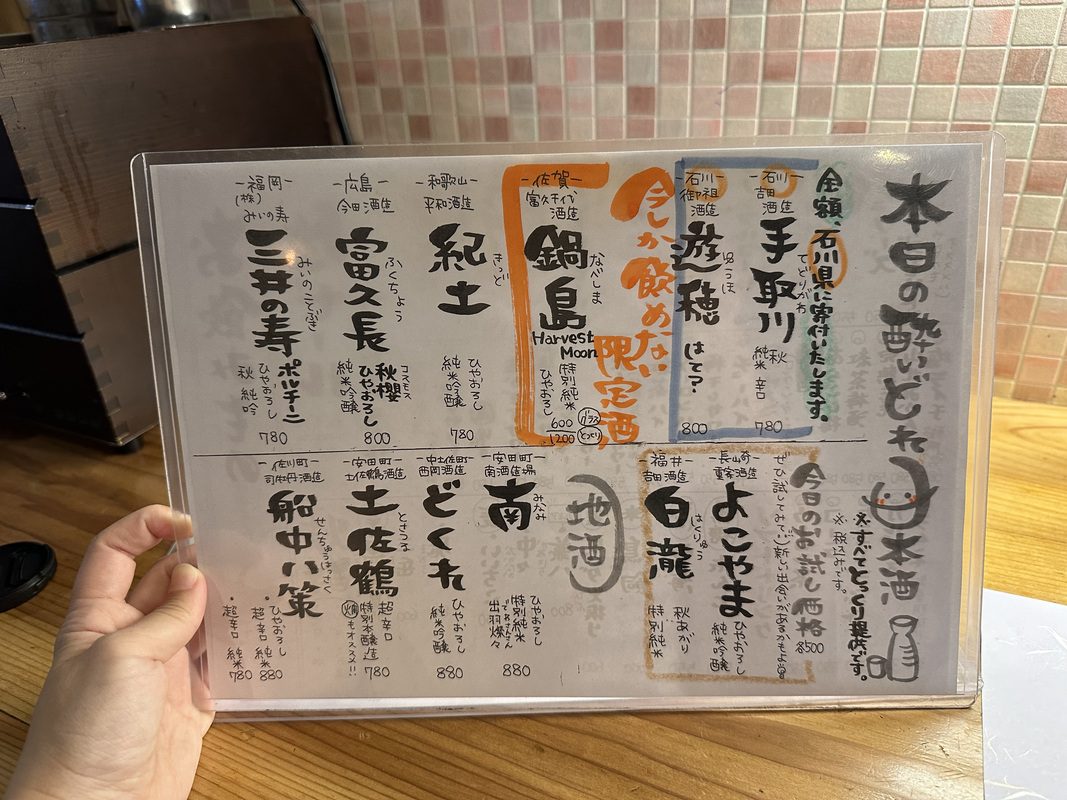 本日の酔いどれ日本酒
※すべてとっくり提供です。
※税込みです。
全額、石川県に寄付いたします。
石川
吉田酒造
手取川
てどりがわ
秋 純米 辛口
780
石川
御祖酒造
遊穂
ゆうほ
はて?
800
今しか飲めない
限定酒
佐賀
富久千代酒造
鍋島
なべしま
Harvest Moon
特別純米
ひやおろし
600 グラス
1200 とっくり
和歌山
平和酒造
紀土
きっど
ひやおろし
純米吟醸
780
広島
今田酒造
富久長
ふくちょう
秋櫻
コスモス
ひやおろし
純米吟醸
800
福岡
(株)みいの寿
三井の寿
みいのことぶき
ポルチーニ
ひやおろし
秋 純吟
780
今日のお試し価格
各500
ぜひ試してみて♪新しい出会いがあるかもよ
長崎
重家酒造
よこやま
ひやおろし
純米吟醸
福井
吉田酒造
白瀧
はくりゅう
秋あがり
特別純米
地酒
安田町
南酒造場
南
みなみ
ひやおろし
特別純米
でわさんさん
出羽燦々
880
中土佐町
西岡酒造
どくれ
ひやおろし
純米吟醸
880
安田町
土佐鶴酒造
土佐鶴
とさつる
超辛口
特別本醸造
燗もオススメ!!
780
佐川町
司牡丹酒造
船中八策
せんちゅうはっさく
ひやおろし
超辛口 純米
880
超辛口 純米
780